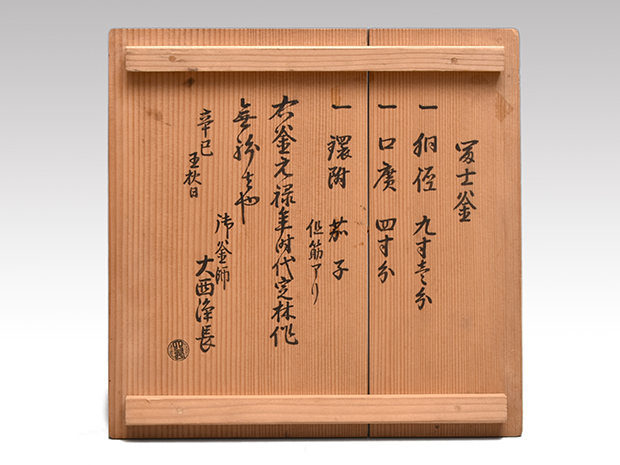 冨士釜
一 胴径 九寸壱分
一 口廣 四寸分
一 鐶附 茄子
但筋アリ
右釜元禄年時代定林作
無紛者也
辛巳
玉秋日
御釜師
大西浄長